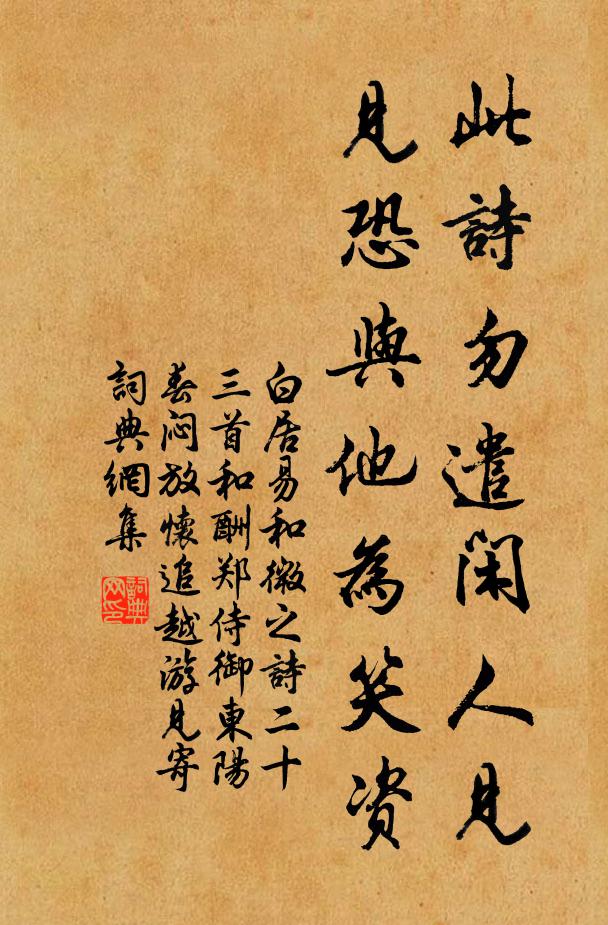 此詩勿遣閑人見
見恐與他為笑资
白居易和微之詩二十
三首和酬郑侍御東陽
春闷放懷追越游見寄
詞典網集
詞典
网印